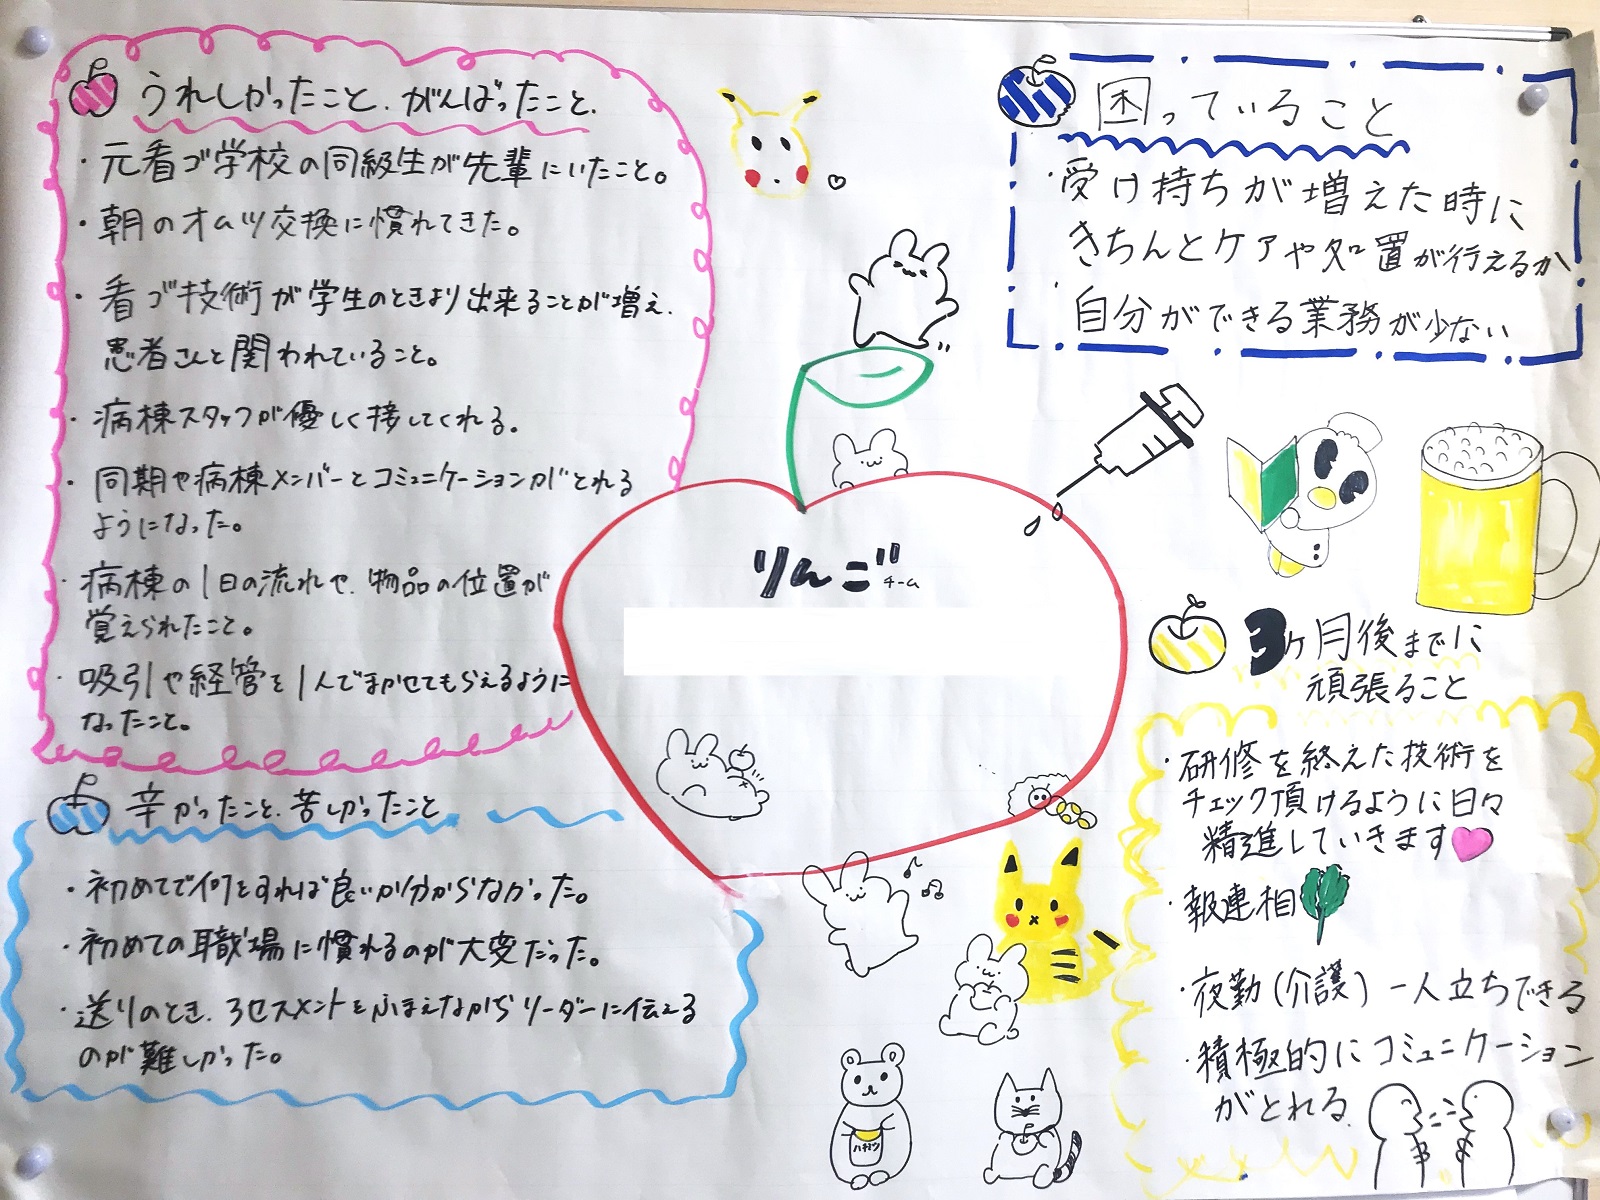 うれしかったこと、がんばったこと、
・元看ゴ学校の同級生が先輩にいたこと。
・朝のオムツ交換に慣れてきた。
・看ゴ技術が学生のときより出来ることが増え、
患者さんと関われていること。
・病棟スタッフが優しく接してくれる。
・同期や病棟メンバーとコミュニケーションがとれる
ようになった。
・病棟の1日の流れや、物品の位置が
覚えられたこと。
・吸引や経管を1人でまかせてもらえるように
なったこと。
辛かったこと、苦しかったこと
・初めてで何をすれば良いか分からなかった。
・初めての職場に慣れるのが大変だった。
・送りのとき、アセスメントをふまえながらリーダーに伝える
のが難しかった。
りんご
チーム
困っていること
・受け持ちが増えた時に
きちんとケアや処置が行えるか
・自分ができる業務が少ない
3ヶ月後までに
頑張ること
・研修を終えた技術を
チェック頂けるように日々
精進していきます
・報連相
・夜勤(介護)一人立ちできる
・積極的にコミュニケーション
がとれる
ハチミツ